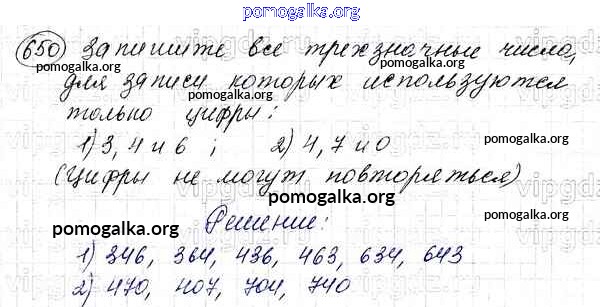 pomogalka.org
650 Запишите все трехзначные числа,
pomogalka.org pomogalka.org
для записи которых используются
pomogalka.org
только цифры:
pomogalka.org
1) 3, 4 и 6 ; 2) 4, 7 и 0
pomogalka.org pomogalka.org
(Цифры не могут повторяться)
pomogalka.org
pomogalka.org Решение: pomogalka.org
1) 346, 364, 436, 463, 634, 643
pomogalka.org
2) 470, 407, 704, 740
pomogalka.org